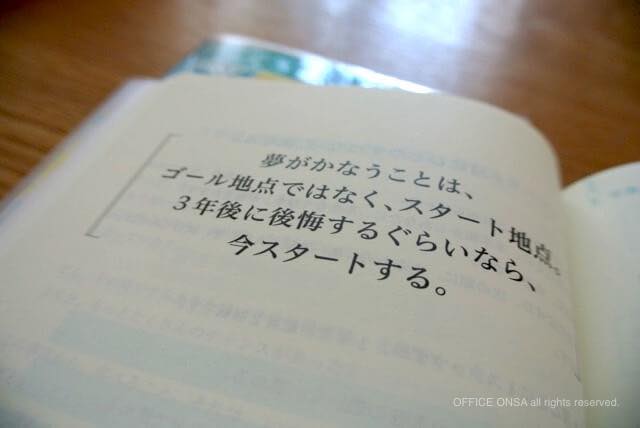 夢がかなうことは、
ゴール地点ではなく、スタート地点。
3年後に後悔するぐらいなら、
今スタートする。
OFFICE ONSA all rights reserved.